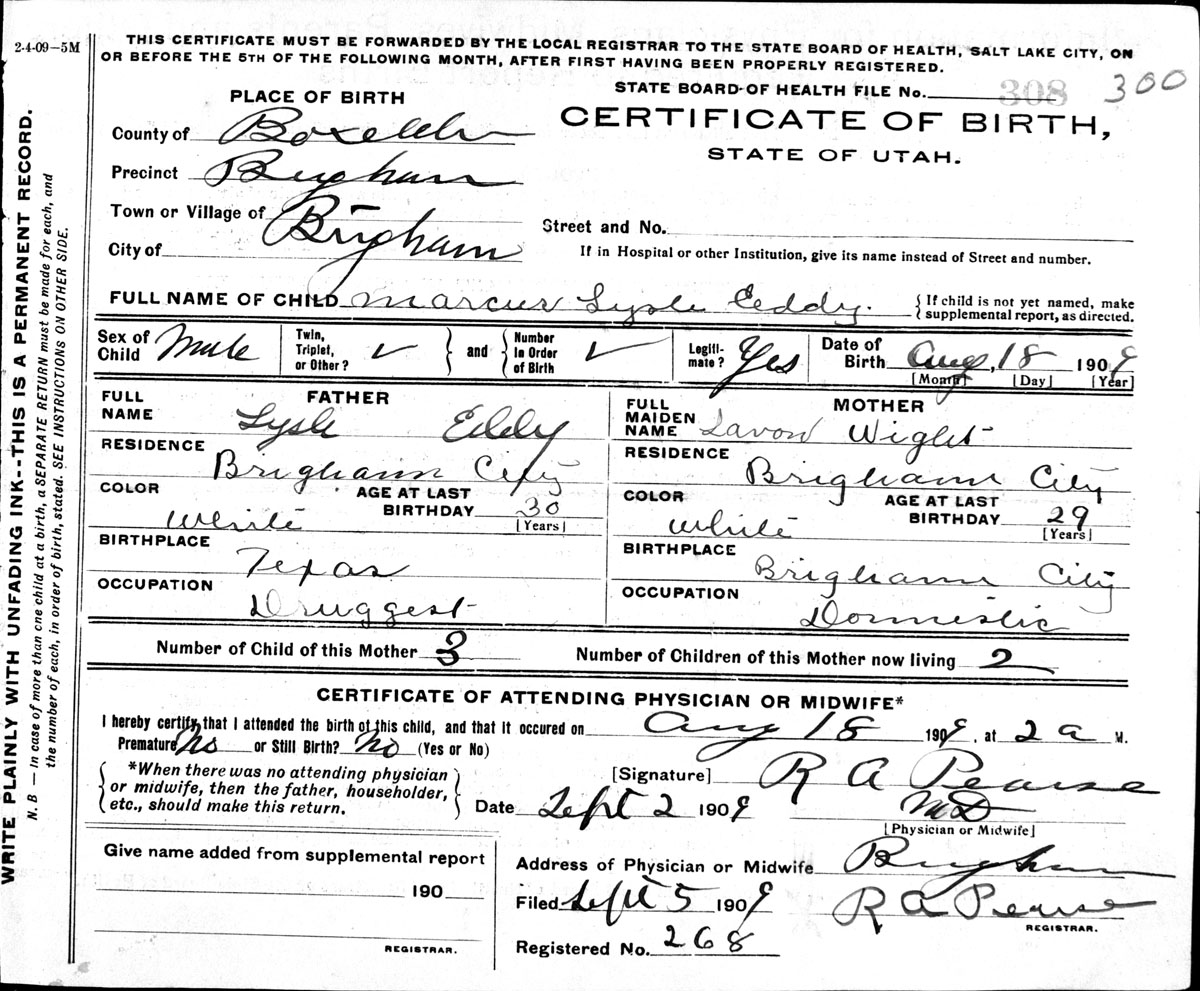 2-4-09-5M
THIS CERTIFICATE MUST BE FORWARDED BY THE LOCAL REGISTRAR TO THE STATE BOARD OF HEALTH, SALT LAKE CITY, ON
OR BEFORE THE 5TH OF THE FOLLOWING MONTH, AFTER FIRST HAVING BEEN PROPERLY REGISTERED.
STATE BOARD OF HEALTH FILE No. 308 300
CERTIFICATE OF BIRTH,
STATE OF UTAH.
PLACE OF BIRTH
County of Boxelder
Precinct Brigham
Town or Village of
City of Brigham
Street and No.
If in Hospital or other Institution, give its name instead of Street and number.
FULL NAME OF CHILD Marcus Lysle Eddy.
{ If child is not yet named, make
supplemental report, as directed.
Sex of Child Male
Twin, Triplet, or Other? ✓ } and { Number in Order of Birth ✓
Legitimate? Yes
Date of Birth Aug, 18 1909
[Month] [Day] [Year]
FATHER
FULL NAME Lysle Eddy
RESIDENCE Brigham City
COLOR White
AGE AT LAST BIRTHDAY 30
[Years]
BIRTHPLACE Texas
OCCUPATION Druggest
MOTHER
FULL MAIDEN NAME Lavon Wight
RESIDENCE Brigham City
COLOR White
AGE AT LAST BIRTHDAY 29
[Years]
BIRTHPLACE Brigham City
OCCUPATION Domestic
Number of Child of this Mother 3 Number of Children of this Mother now living 2
CERTIFICATE OF ATTENDING PHYSICIAN OR MIDWIFE*
I hereby certify that I attended the birth of this child, and that it occured on Aug 18 1909, at 2 a M.
Premature No or Still Birth? No (Yes or No)
{ *When there was no attending physician
or midwife, then the father, householder,
etc., should make this return. }
[Signature] R A Pearse
MD
[Physician or Midwife]
Date Sept 2 1909
Give name added from supplemental report
190
REGISTRAR.
Address of Physician or Midwife Brigham
Filed Sept 5 1909 R A Pearse
REGISTRAR.
Registered No. 268
WRITE PLAINLY WITH UNFADING INK--THIS IS A PERMANENT RECORD.
N. B — In case of more than one child at a birth, a SEPARATE RETURN must be made for each, and
the number of each, in order of birth, stated. SEE INSTRUCTIONS ON OTHER SIDE.